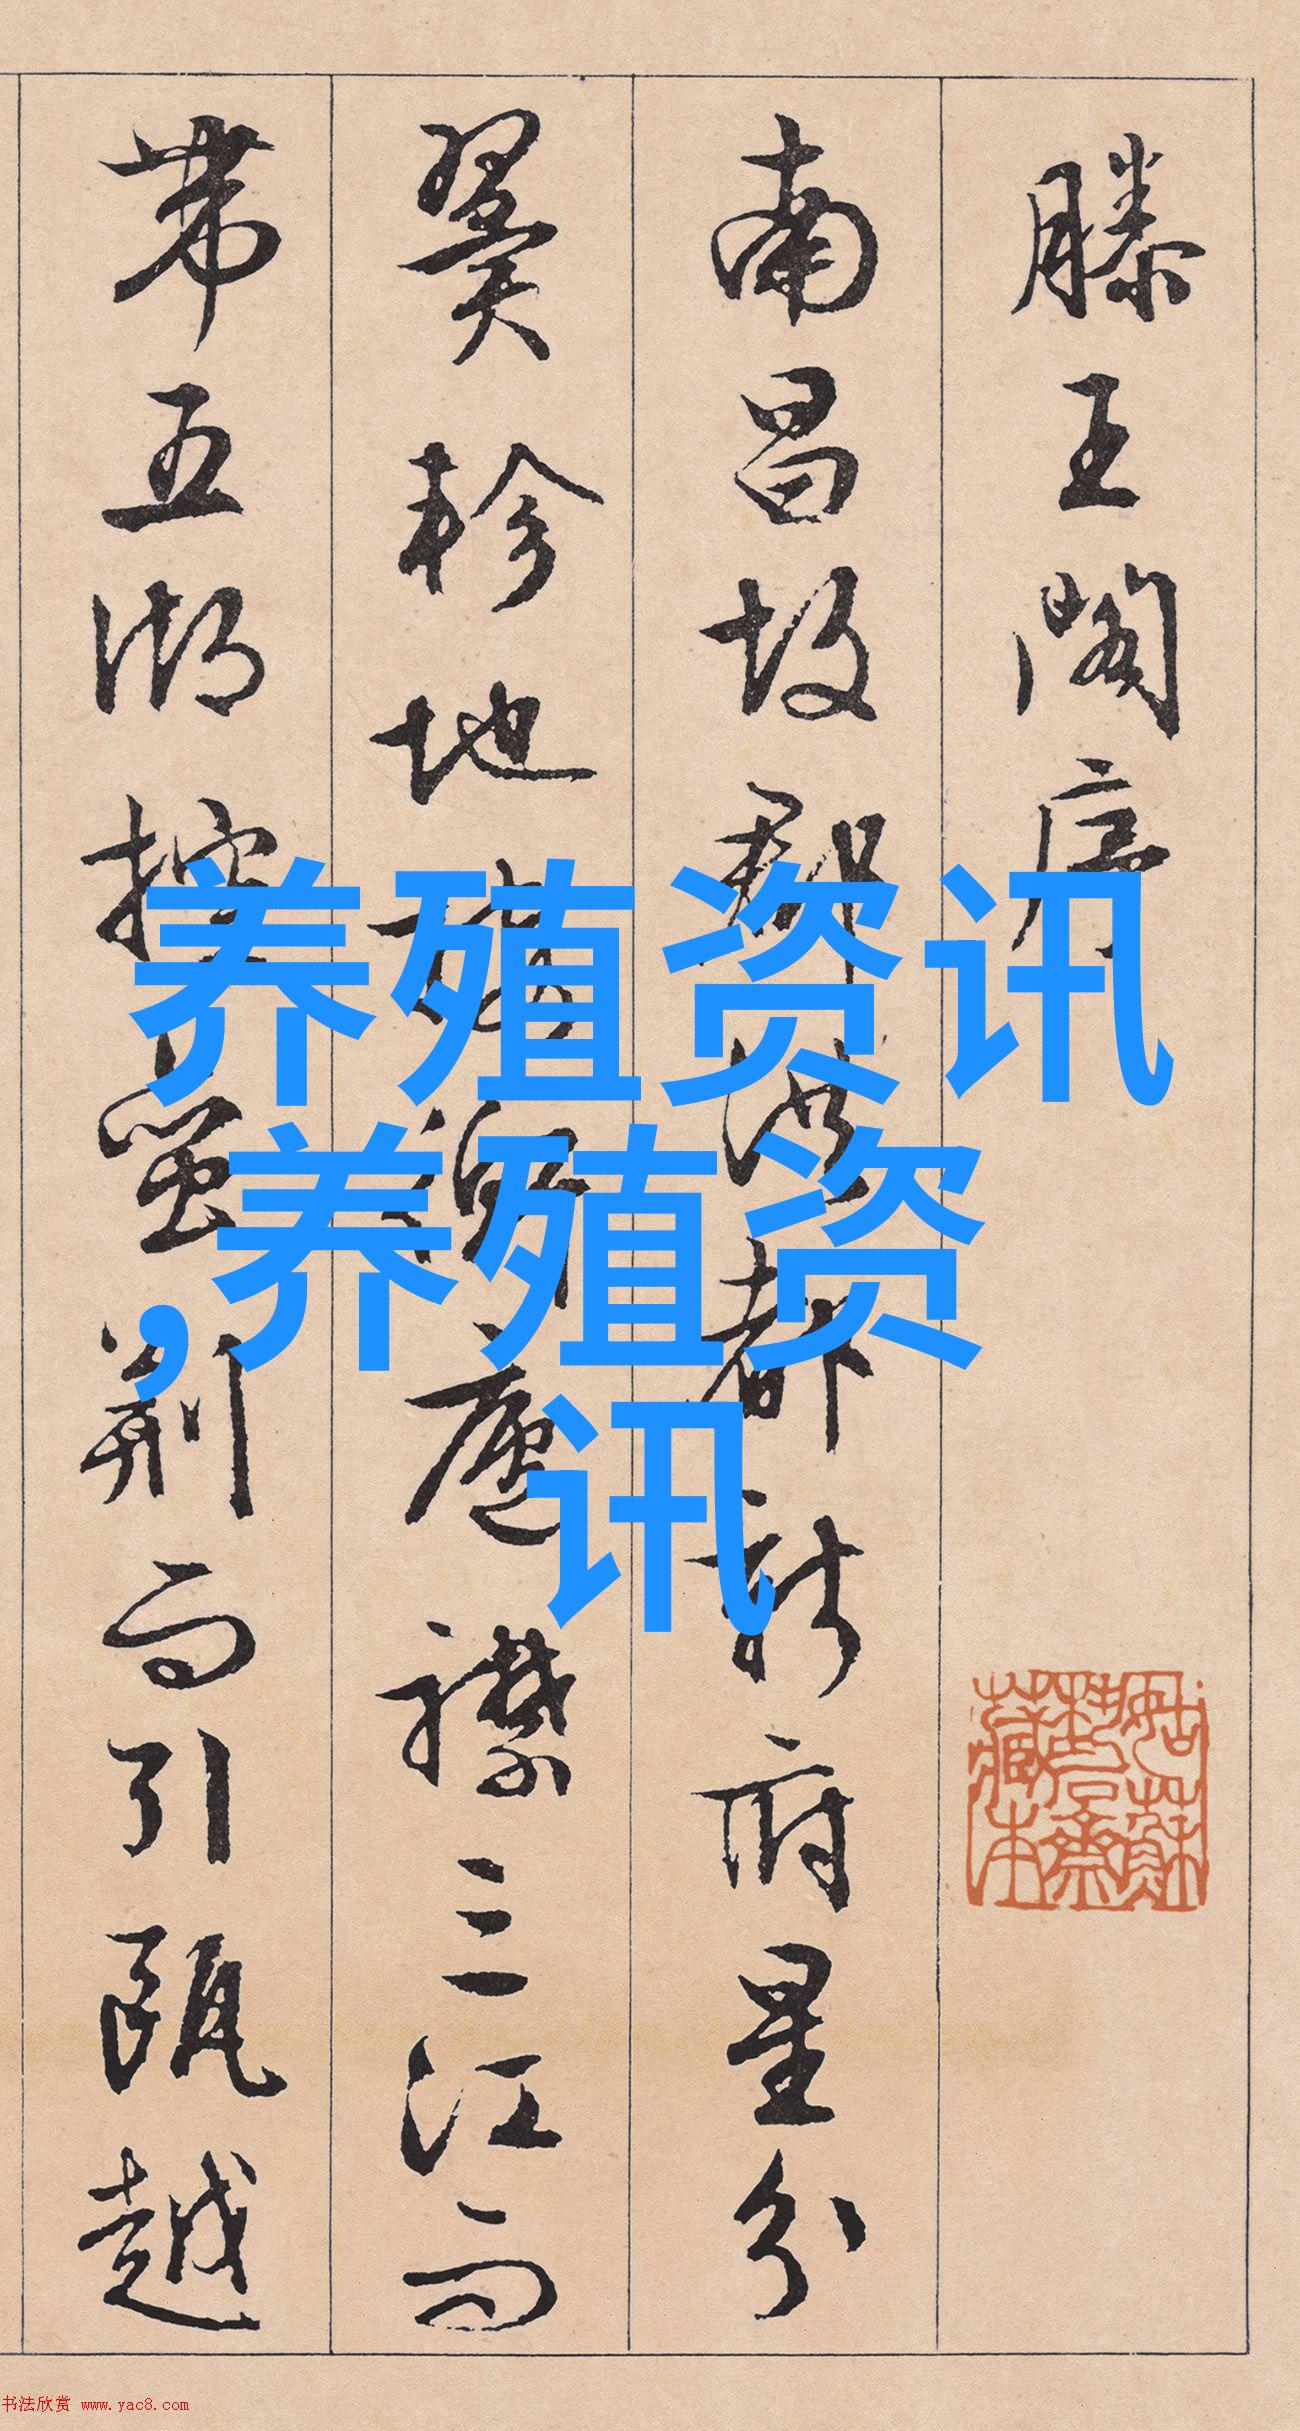 滕王阁序
南昌故郡洪都新府星分
翼轸地接衡庐襟三江而
带五湖控蛮荆而引瓯越
养殖资讯
,养殖资
讯
姑苏
藏本
书法欣赏 www.yac8.com